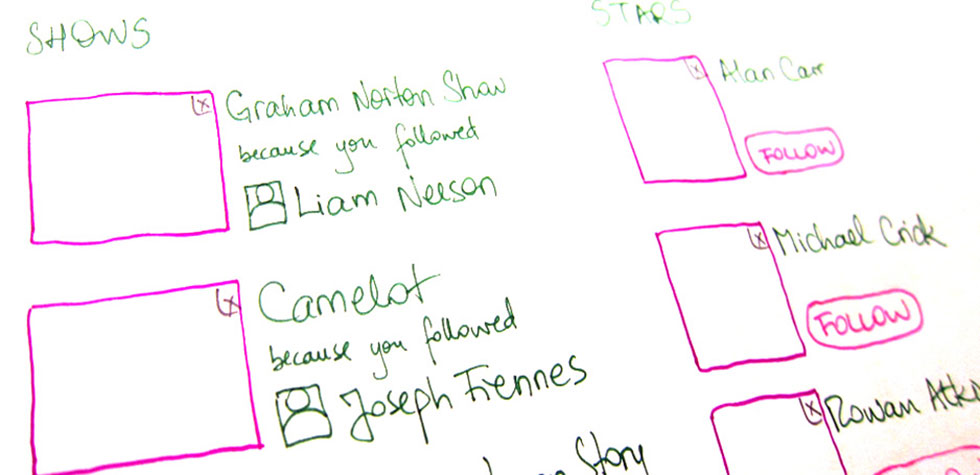 SHOWS
x
Graham Norton Show
because you followed
Liam Neeson
x
Camelot
because you followed
Joseph Fiennes
Story
STARS
x
Alan Carr
FOLLOW
x
Michael Crick
FOLLOW
x
Rowan Atki